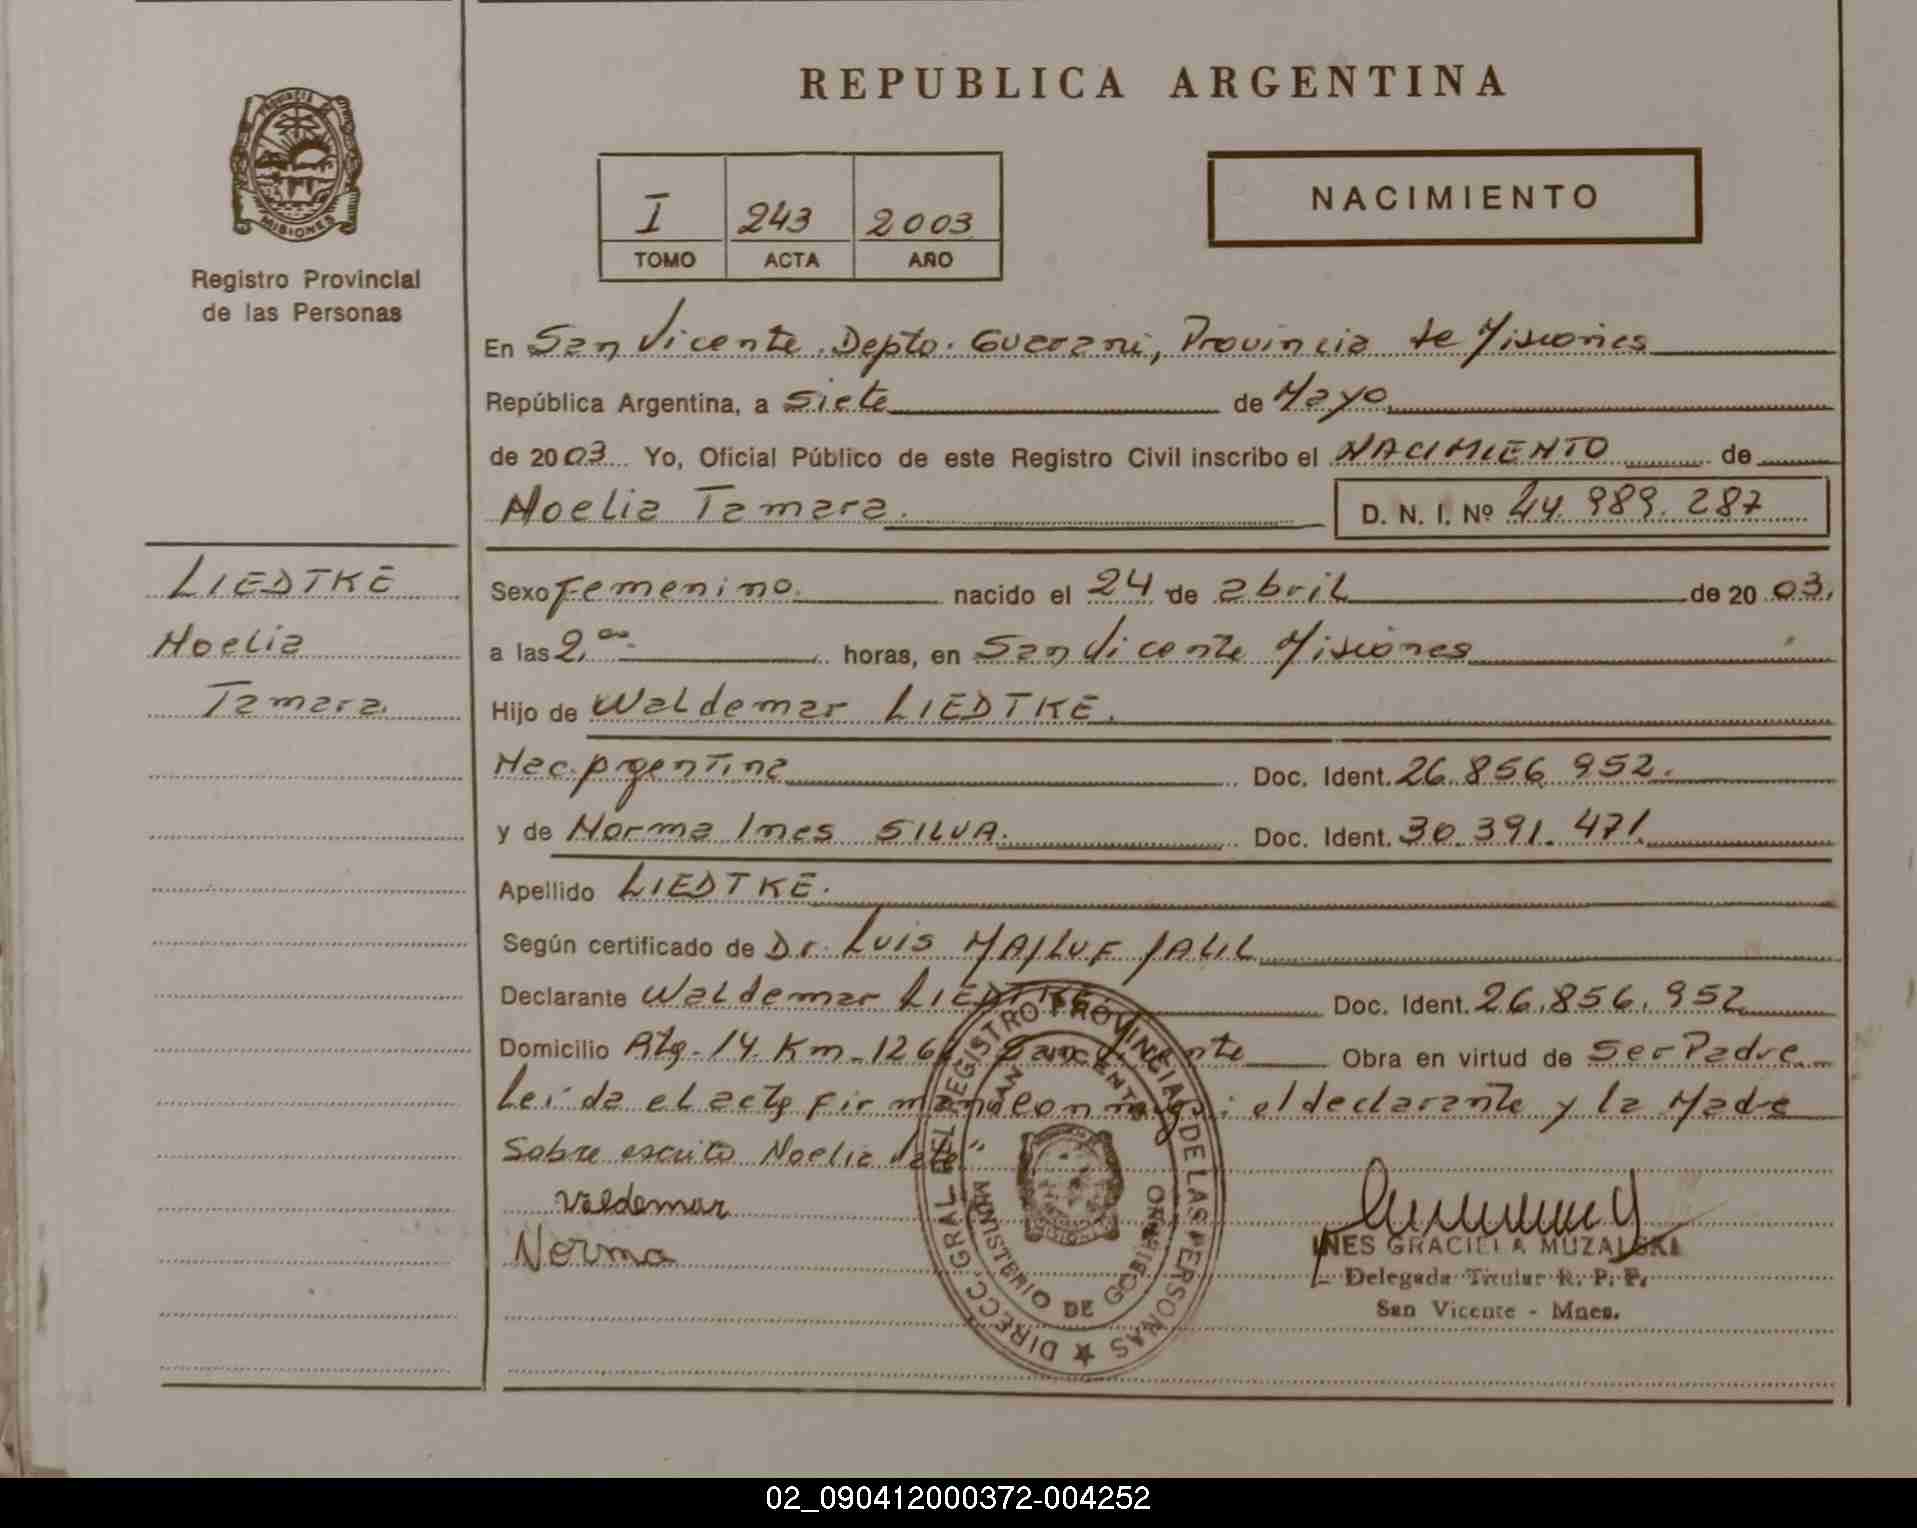 REPUBLICA ARGENTINA
PROVINCIA DE
MISIONES
Registro Provincial
de las Personas
I 243 2003
TOMO ACTA AÑO
NACIMIENTO
En San Vicente. Depto. Guarani, Provincia de Misiones
República Argentina, a Siete de Mayo
de 2003 Yo, Oficial Público de este Registro Civil inscribo el NACIMIENTO de
Noelia Tamara. D. N. I. Nº 44.989.287
LIEDTKE
Noelia
Tamara.
Sexo Femenino. nacido el 24 de abril de 2003.
a las 2,00 horas, en San Vicente Misiones
Hijo de Waldemar LIEDTKE.
Nac. Argentina Doc. Ident. 26.856.952.
y de Norma Ines SILVA. Doc. Ident. 30.391.471.
Apellido LIEDTKE.
Según certificado de Dr. Luis MAJLUF JALIL
Declarante Waldemar LIEDTKE. Doc. Ident. 26.856.952
Domicilio Rta. 14 Km. San Vicente Obra en virtud de Ser Padre.
Leída el acta firman conmigo: el declarante y la Madre
Sobre escrito Noelia Vale"
Valdemar
Norma
DIRECC. GRAL DEL REGISTRO PROVINCIAL DE LAS PERSONAS
SAN VICENTE
MINISTERIO DE GOBIERNO
INES GRACIELA MUZALSKI
Delegada Titular R. P. P.
San Vicente - Mnes.
02_090412000372-004252